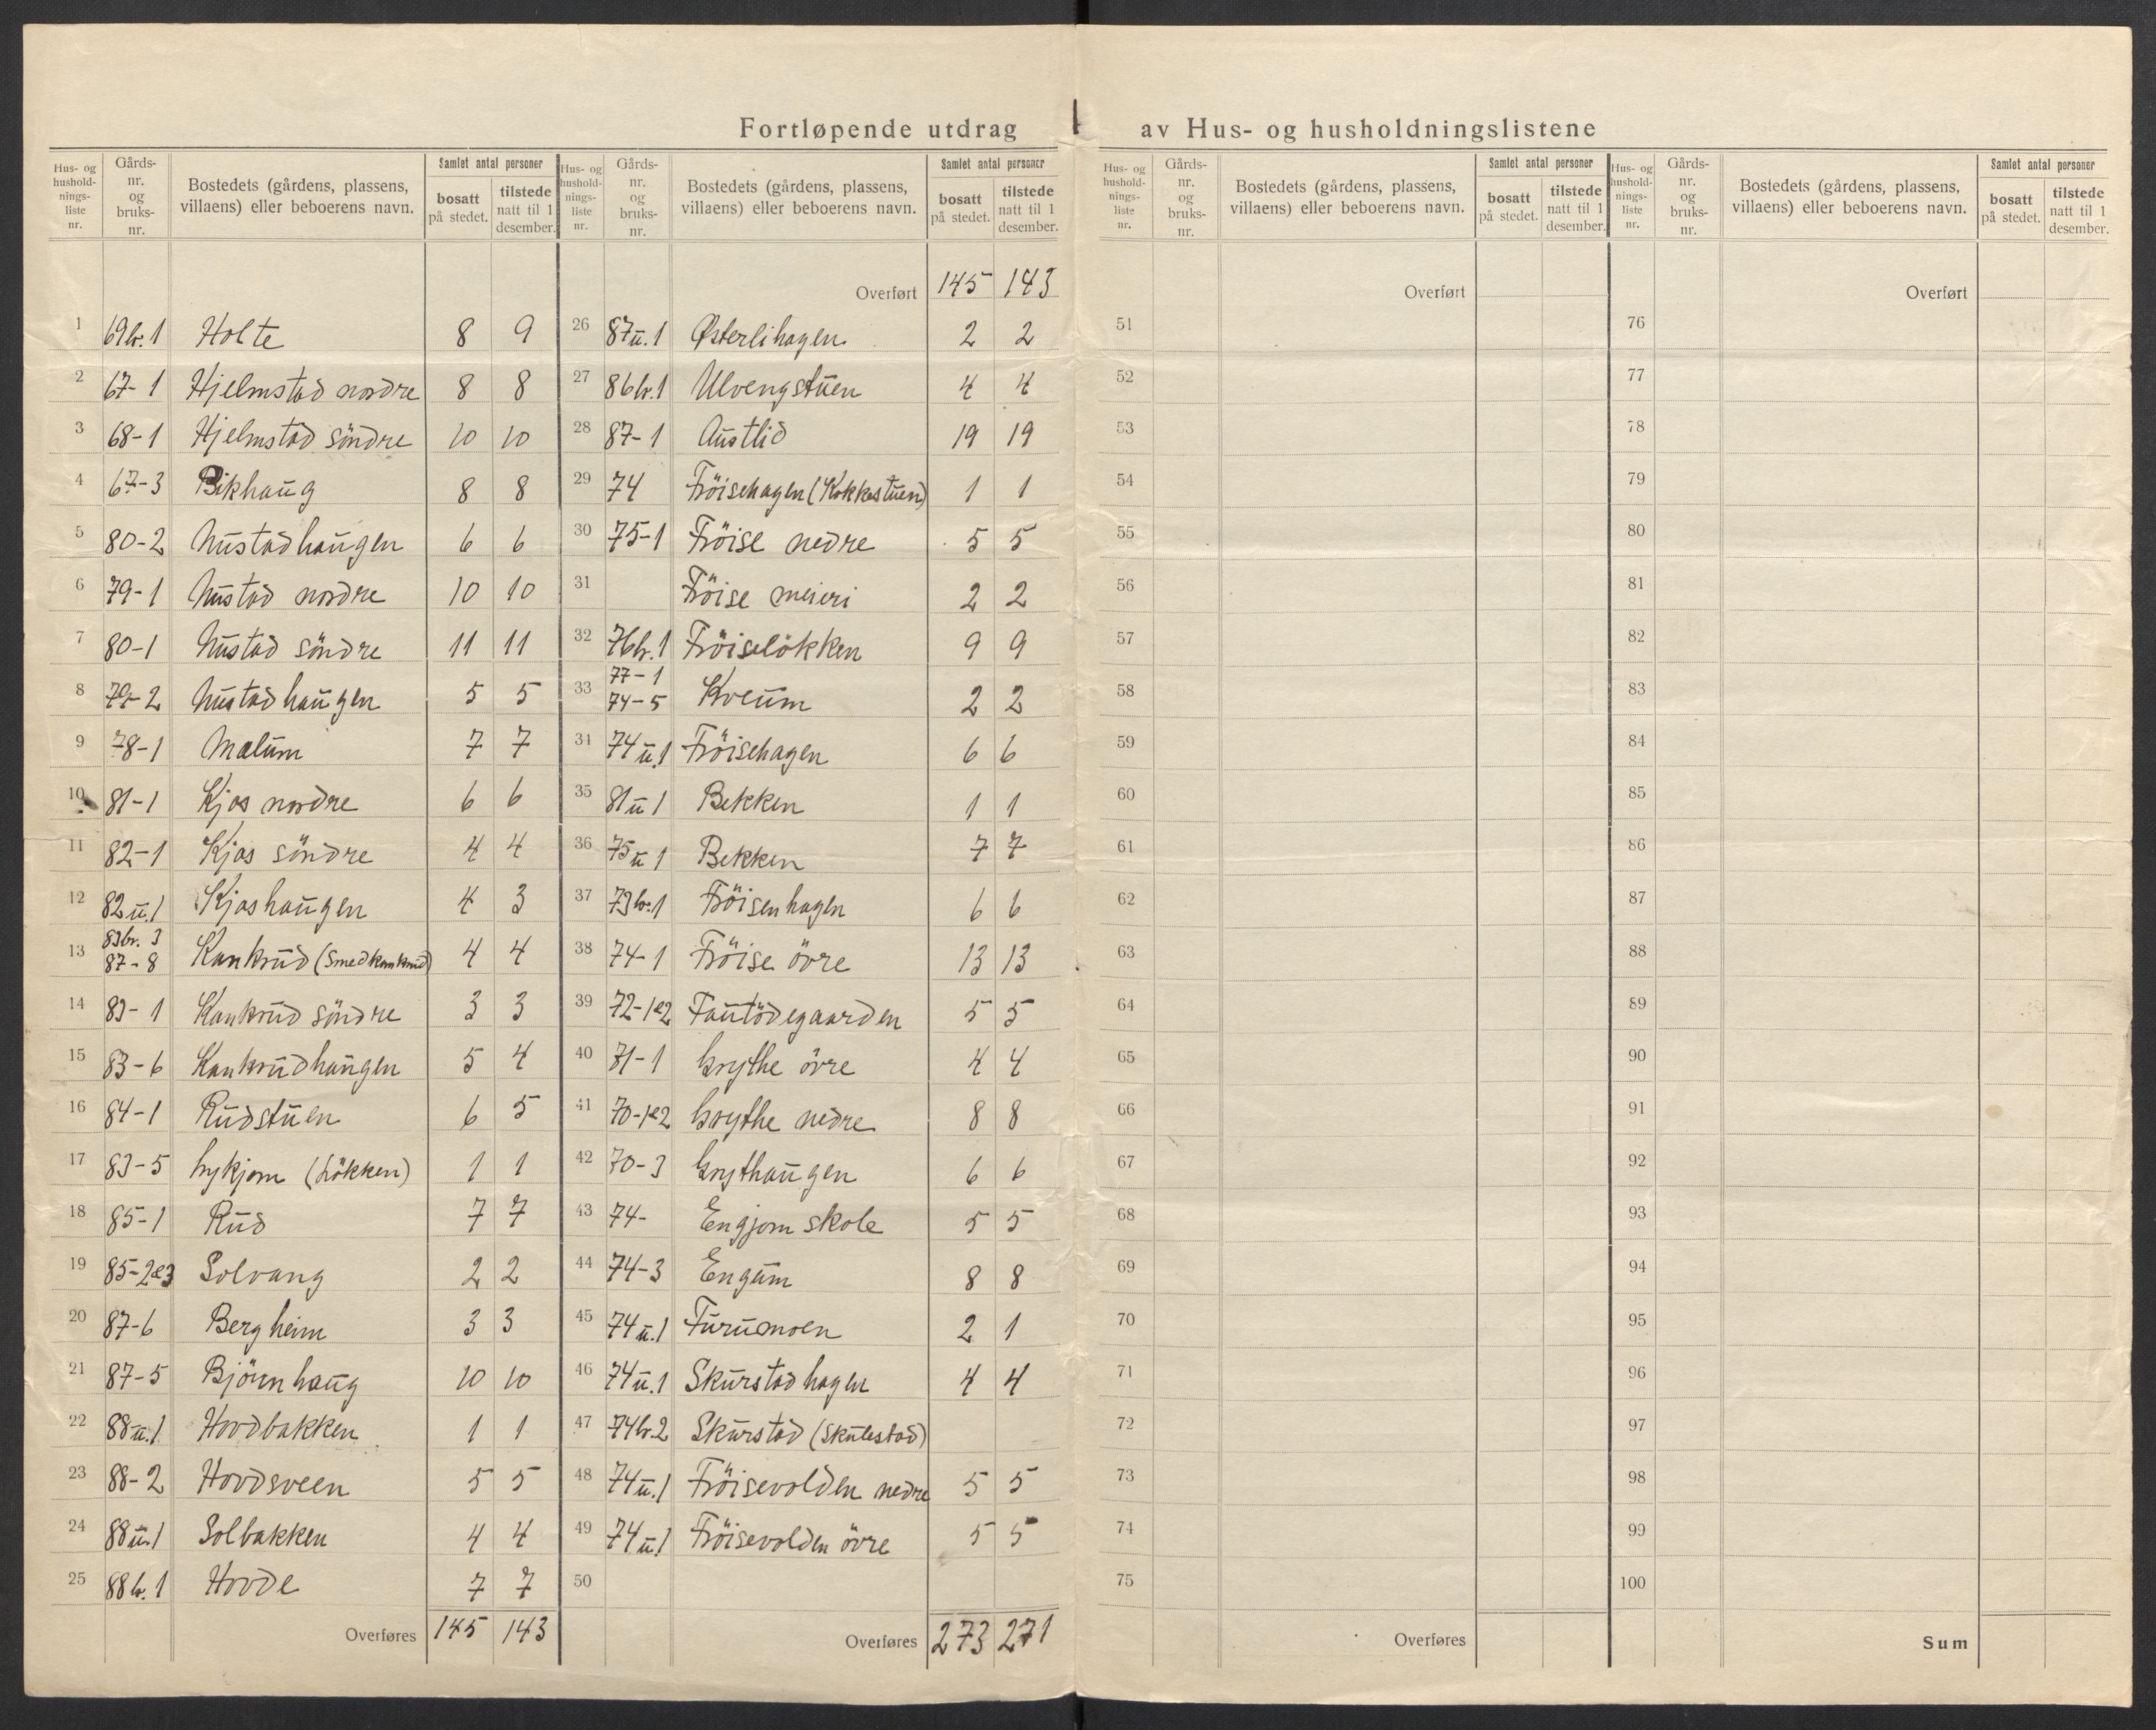 Fortløpende utdrag av Hus- og husholdningslistene
Hus- og hushold- nings- liste nr. | Gårds- nr. og bruks- nr. | Bostedets (gårdens, plassens, villaens) eller beboerens navn. | Samlet antal personer | bosatt på stedet. | tilstede natt til 1 desember.
1 69br.1 Holte 8 9
2 67-1 Hjelmstad nordre 8 8
3 68-1 Hjelmstad söndre 10 10
4 67-3 Bikhaug 8 8
5 80-2 Nustadhaugen 6 6
6 79-1 Nustad nordre 10 10
7 80-1 Nustad söndre 11 11
8 79-2 Nustadhaugen 5 5
9 78-1 Mælum 7 7
10 81-1 Kjos nordre 6 6
11 82-1 Kjos söndre 4 4
12 82u.1 Kjoshaugen 4 3
13 83br.3 87-8 Kankrud (Smedkankrud) 4 4
14 83-1 Kankrud söndre 3 3
15 83-6 Kankrudhaugen 5 4
16 84-1 Rudstuen 6 5
17 83-5 Lykjem (Lökken) 1 1
18 85-1 Rud 7 7
19 85-2&3 Solvang 2 2
20 87-6 Bergheim 3 3
21 87-5 Björnhaug 10 10
22 88u.1 Hovdbakken 1 1
23 88-2 Hovdsveen 5 5
24 88u.1 Solbakken 4 4
25 88br.1 Hovde 7 7
Overføres 145 143
Hus- og hushold- nings- liste nr. | Gårds- nr. og bruks- nr. | Bostedets (gårdens, plassens, villaens) eller beboerens navn. | Samlet antal personer | bosatt på stedet. | tilstede natt til 1 desember.
Overført 145 143
26 87u.1 Østerlihagen 2 2
27 86br.1 Ulvengstuen 4 4
28 87-1 Austlid 19 19
29 74 Fröisehagen (Kokkestuen) 1 1
30 75-1 Fröise nedre 5 5
31 Fröise meieri 2 2
32 76br.1 Fröiselökken 9 9
33 77-1 74-5 Kveum 2 2
34 74u.1 Fröisehagen 6 6
35 81u1 Bekken 1 1
36 75u1 Bekken 7 7
37 73br.1 Fröisenhagen 6 6
38 74-1 Fröise övre 13 13
39 72-1&2 Fautödegaarden 5 5
40 71-1 Grythe övre 4 4
41 70-1&2 Grythe nedre 8 8
42 70-3 Grythaugen 6 6
43 74- Engjom skole 5 5
44 74-3 Engum 8 8
45 74u.1 Furumoen 2 1
46 74u.1 Skurstadhagen 4 4
47 74br.2 Skurstad (Skulestad)
48 74u.1 Fröisevolden nedre 5 5
49 74u.1 Fröisevolden övre 5 5
50
Overføres 273 271
Hus- og hushold- nings- liste nr. | Gårds- nr. og bruks- nr. | Bostedets (gårdens, plassens, villaens) eller beboerens navn. | Samlet antal personer | bosatt på stedet. | tilstede natt til 1 desember.
Overført
51
52
53
54
55
56
57
58
59
60
61
62
63
64
65
66
67
68
69
70
71
72
73
74
75
Overføres
Hus- og hushold- nings- liste nr. | Gårds- nr. og bruks- nr. | Bostedets (gårdens, plassens, villaens) eller beboerens navn. | Samlet antal personer | bosatt på stedet. | tilstede natt til 1 desember.
Overført
76
77
78
79
80
81
82
83
84
85
86
87
88
89
90
91
92
93
94
95
96
97
98
99
100
Sum